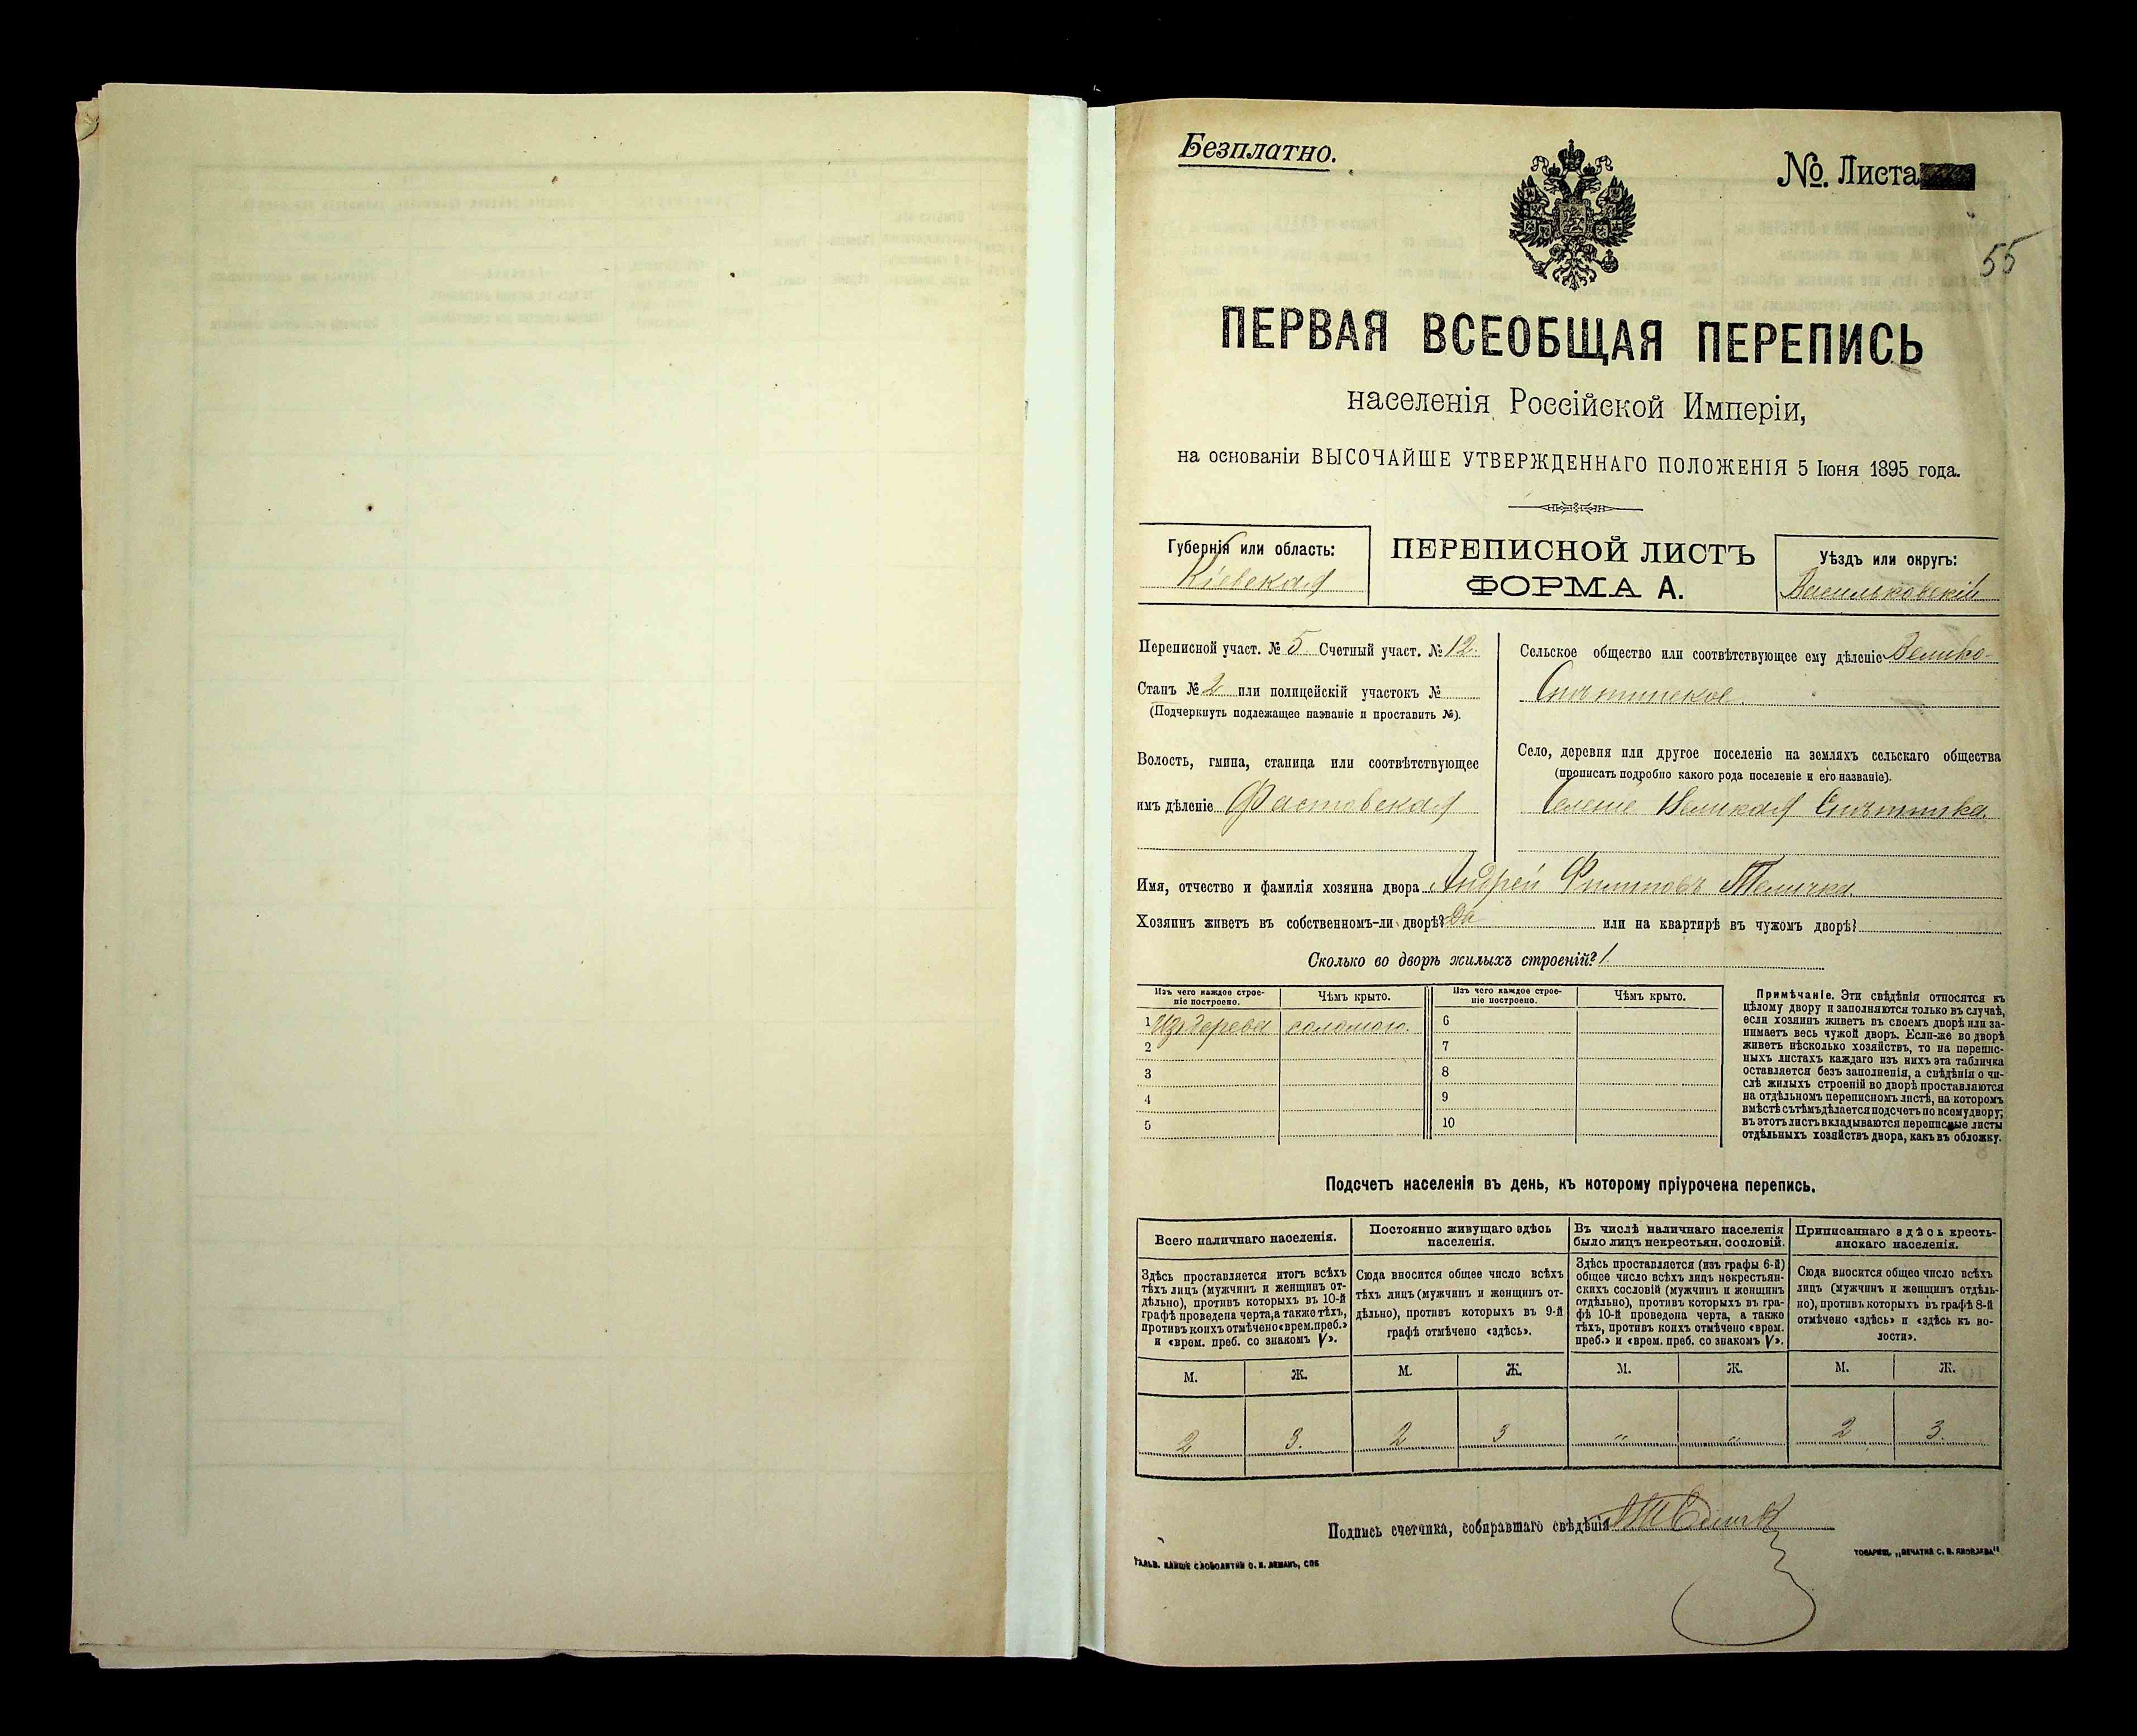 Безплатно.
№. Листа
55
ПЕРВАЯ ВСЕОБЩАЯ ПЕРЕПИСЬ
населенія Россійской Имперіи,
на основаніи ВЫСОЧАЙШЕ УТВЕРЖДЕННАГО ПОЛОЖЕНІЯ 5 Іюня 1895 года.
Губернія или область:
Кіевская
ПЕРЕПИСНОЙ ЛИСТЪ
ФОРМА А.
Уѣздъ или округъ:
Васильковскій
Переписной участ. № 5 Счетный участ. № 12.
Станъ № 2 или полицейскій участокъ №
(Подчеркнуть подлежащее названіе и проставить №).
Волость, гмина, станица или соотвѣтствующее
имъ дѣленіе Фастовская
Сельское общество или соотвѣтствующее ему дѣленіе Велико-
Снѣтинское.
Село, деревня или другое поселеніе на земляхъ сельскаго общества
(прописать подробно какого рода поселеніе и его названіе).
Великая Снѣтинка
Имя, отчество и фамилія хозяина двора Андрей Филиповъ
Хозяинъ живетъ въ собственномъ-ли дворѣ? Да или на квартирѣ въ чужомъ дворѣ?
Сколько во дворѣ жилыхъ строеній? 1
Изъ чего каждое строе-
ніе построено.
Чѣмъ крыто.
Изъ чего каждое строе-
ніе построено.
Чѣмъ крыто.
1 Изъ дерева соломою. 6
2 7
3 8
4 9
5 10
Примѣчаніе. Эти свѣдѣнія относятся къ
цѣлому двору и заполняются только въ случаѣ,
если хозяинъ живетъ въ своемъ дворѣ или за-
нимаетъ весь чужой дворъ. Если-же во дворѣ
живетъ нѣсколько хозяйствъ, то на перепис-
ныхъ листахъ каждаго изъ нихъ эта табличка
оставляется безъ заполненія, а свѣдѣнія о чи-
слѣ жилыхъ строеній во дворѣ проставляются
на отдѣльномъ переписномъ листѣ, на которомъ
вмѣстѣ съ тѣмъ дѣлается подсчетъ по всему двору;
въ этотъ листъ вкладываются переписные листы
отдѣльныхъ хозяйствъ двора, какъ въ обложку.
Подсчетъ населенія въ день, къ которому пріурочена перепись.
Всего наличнаго населенія.
Здѣсь проставляется итогъ всѣхъ
тѣхъ лицъ (мужчинъ и женщинъ от-
дѣльно), противъ которыхъ въ 10-й
графѣ проведена черта, а также тѣхъ,
противъ коихъ отмѣчено «врем. преб.»
и «врем. преб. со знакомъ V».
Постоянно живущаго здѣсь
населенія.
Сюда вносится общее число всѣхъ
тѣхъ лицъ (мужчинъ и женщинъ от-
дѣльно), противъ которыхъ въ 9-й
графѣ отмѣчено «здѣсь».
Въ числѣ наличнаго населенія
было лицъ некрестьян. сословій.
Здѣсь проставляется (изъ графы 6-й)
общее число всѣхъ лицъ некрестьян-
скихъ сословій (мужчинъ и женщинъ
отдѣльно), противъ которыхъ въ гра-
фѣ 10-й проведена черта, а также
тѣхъ, противъ коихъ отмѣчено «врем.
преб.» и «врем. преб. со знакомъ V».
Приписаннаго здѣсь кресть-
янскаго населенія.
Сюда вносится общее число всѣхъ
лицъ (мужчинъ и женщинъ отдѣль-
но), противъ которыхъ въ графѣ 8-й
отмѣчено «здѣсь» и «здѣсь къ во-
лости».
М. Ж. М. Ж. М. Ж. М. Ж.
2 3. 2 3 " " 2 3.
Подпись счетчика, собиравшаго свѣдѣнія
ТОВАРИЩ. „ПЕЧАТНЯ С. П. ЯКОВЛЕВА"